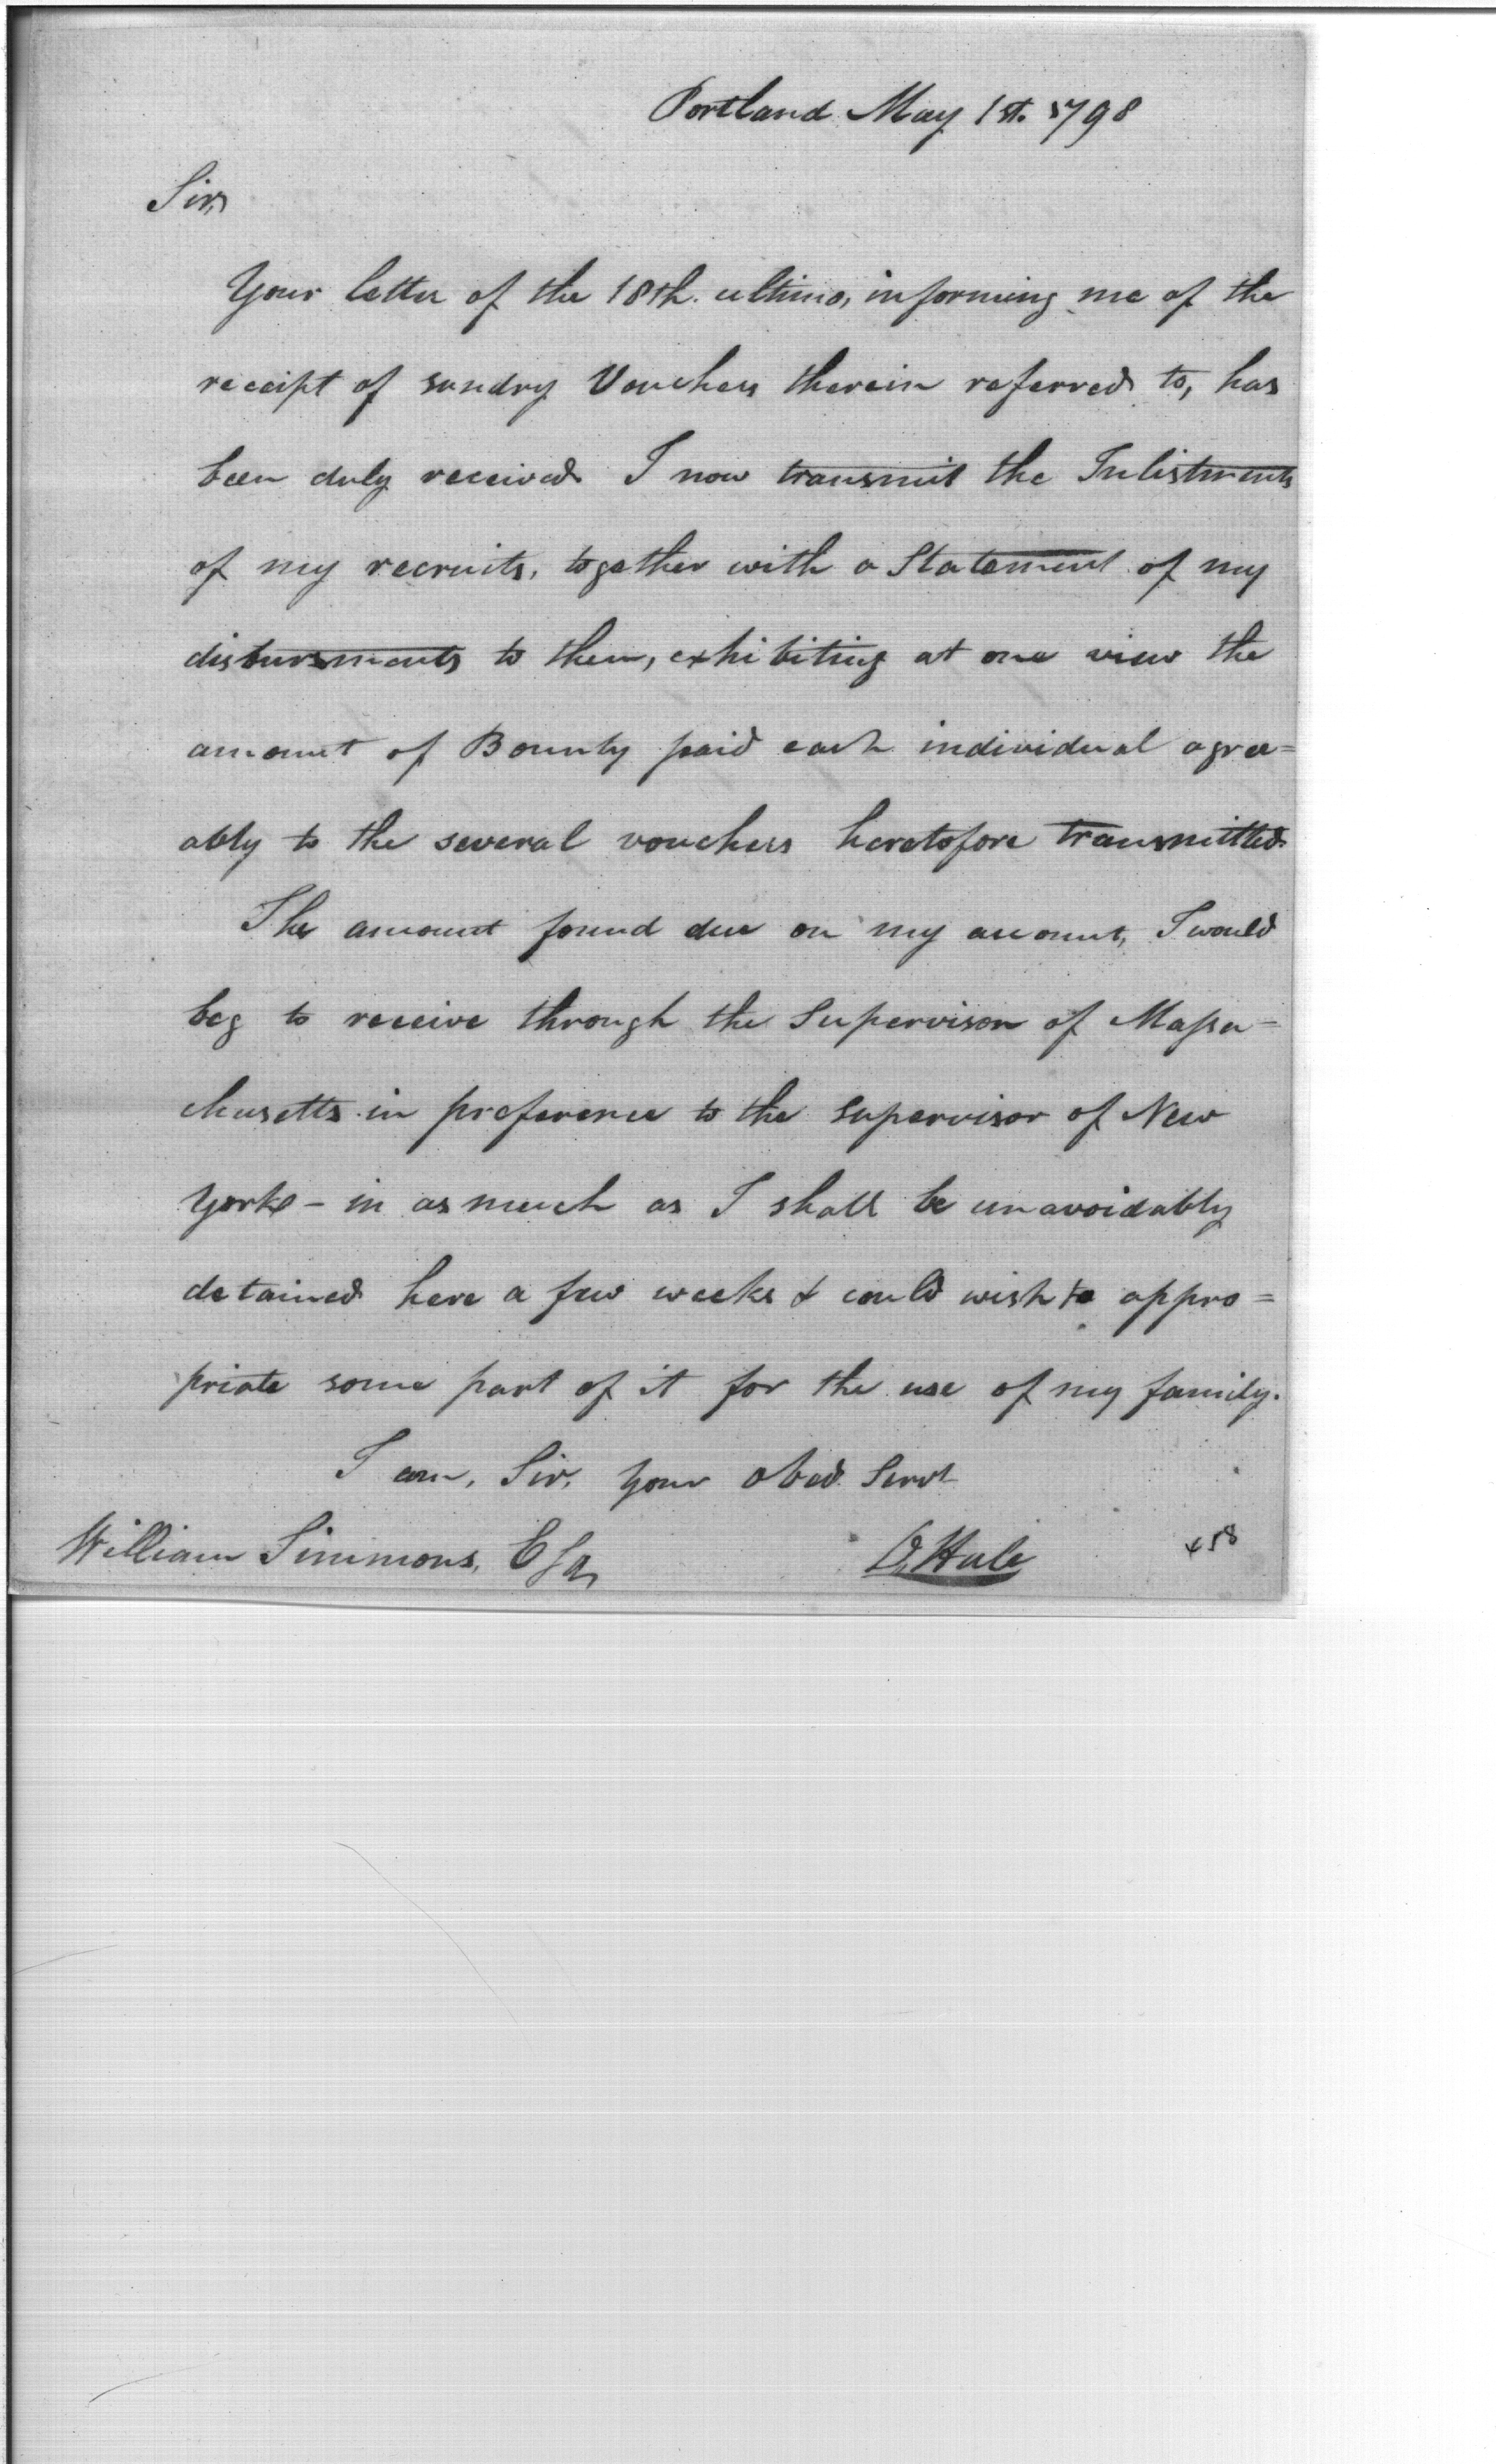 Portland May 1st. 1798
Sir,
Your letter of the 18th. ultimo, informing me of the
receipt of sundry Vouchers therein referred to, has
been duly received. I now transmit the Inlistments
of my recruits, together with a Statement of my
disbursments to them, exhibiting at one view the
amount of Bounty paid each individual agree=
ably to the several vouchers heretofore transmitted.
The amount found due on my account, I would
beg to receive through the Supervisor of Massa-
chusetts in preference to the Supervisor of New
York - in as much as I shall be unavoidably
detained here a few weeks & could wish to appro=
priate some part of it for the use of my family.
I am, Sir, your obed. Servt
William Simmons, Esq,
D. Hale